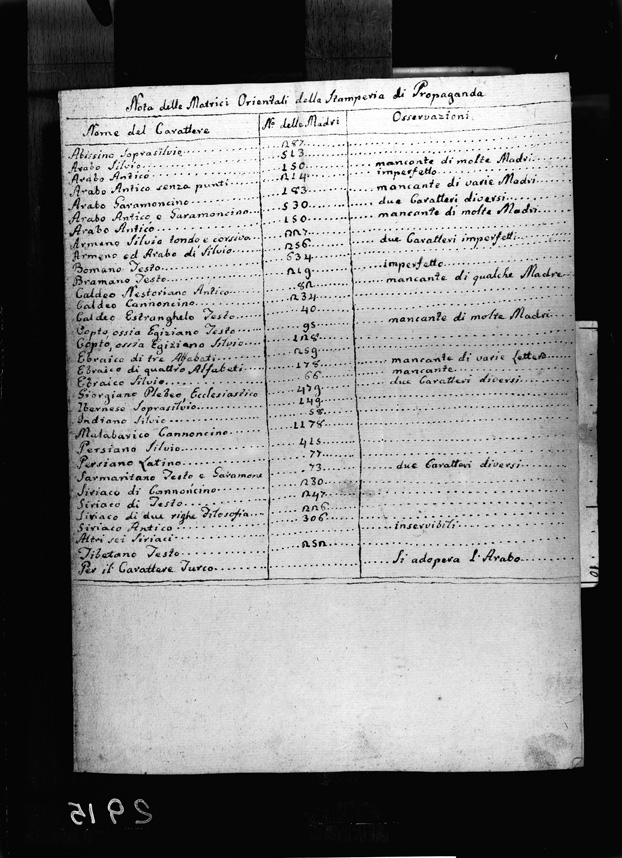 Nota delle Matrici Orientali della Stamperia di Propaganda
Nome del Carattere N.º delle Madri Osservazioni
Abissino Soprasilvio 287
Arabo Silvio 513
Arabo Antico 150 mancante di molte Madri
Arabo Antico senza punti 214 imperfetto
Arabo Garamoncino 183 mancante di varie Madri
Arabo Antico e Garamoncino 530 due Caratteri diversi
Arabo Antico 150 mancante di molte Madri
Armeno Silvio tondo e corsivo 227
Armeno ed Arabo di Silvio 256 due Caratteri imperfetti
Bomano Testo 634
Bramano Testo 219 imperfetto
Caldeo Nestoriano Antico 82 mancante di qualche Madre
Caldeo Cannoncino 234
Caldeo Estranghelo Testo 40
Copto, ossia Egiziano Testo 95 mancante di molte Madri
Copto, ossia Egiziano Silvio 128
Ebraico di tre Alfabeti 259
Ebraico di quattro Alfabeti 178 mancante di varie Lettere
Ebraico Silvio 66 mancante
Giorgiano Plebeo, Ecclesiastico 479 due Caratteri diversi
Ibernese Soprasilvio 149
Indiano Silvio 58
Malabarico Cannoncino 1178
Persiano Silvio 415
Persiano Latino 77
Sarmaritano Testo e Garamone 73 due Caratteri diversi
Siriaco di Cannoncino 230
Siriaco di Testo 247
Siriaco di due righe Filosofia 226
Siriaco Antico 306
Altri sei Siriaci inservibili
Tibetano Testo 252
Per il Carattere Turco Si adopera l'Arabo
2915